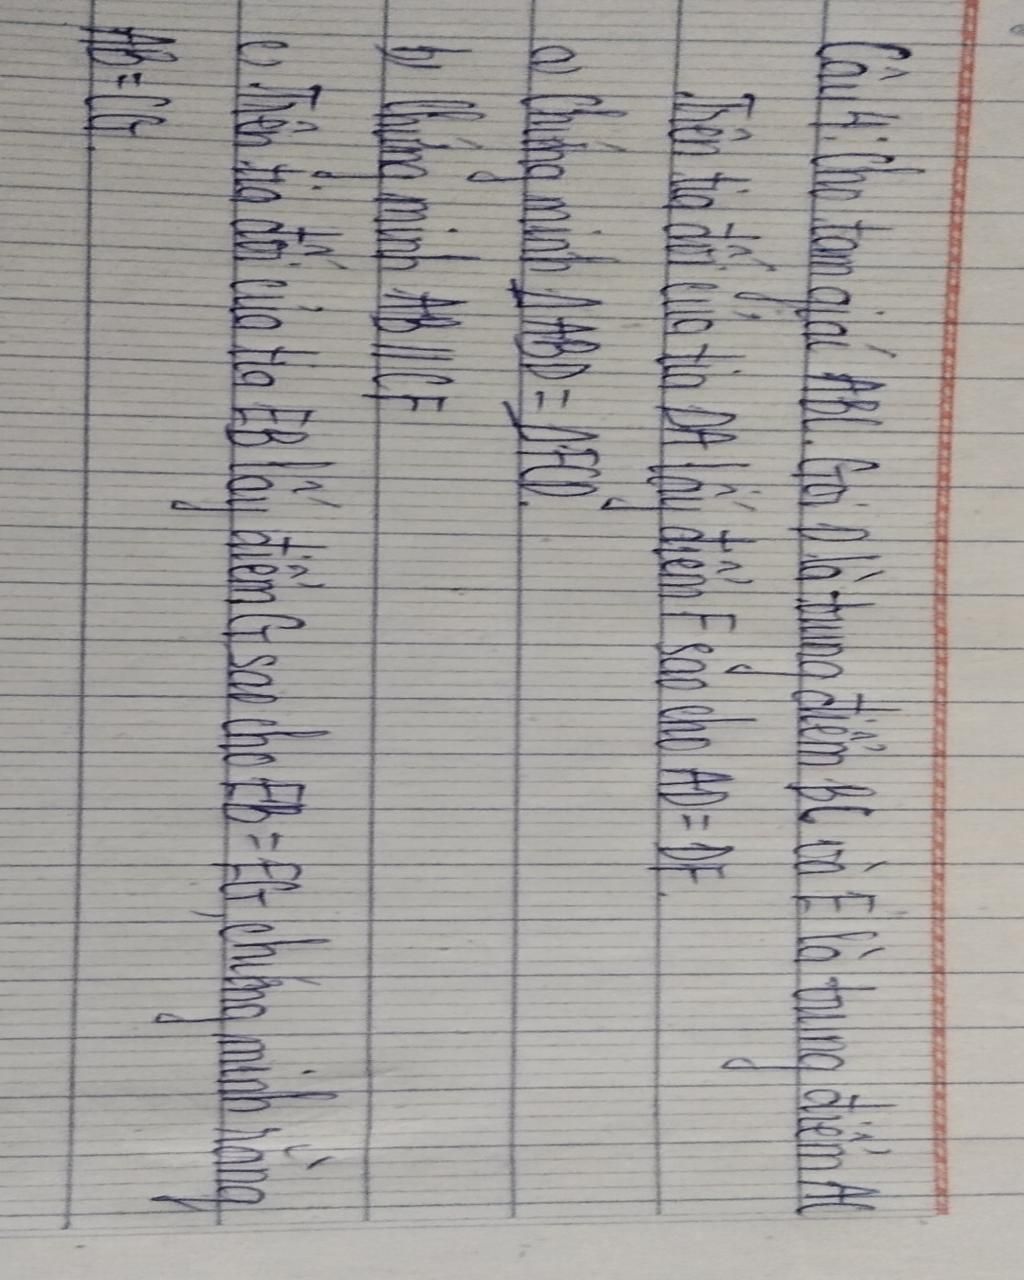 Câu 4: Cho tam giác ABC. Gọi D là trung điểm BC và E là trung điểm AC
Trên tia đối của tia DA lấy điểm F sao cho AD = DF.
a) Chứng minh ΔABD = ΔFCD.
b) Chứng minh AB // CF
c) Trên tia đối của tia EB lấy điểm G sao cho EB = EG, chứng minh rằng
AB = CG.